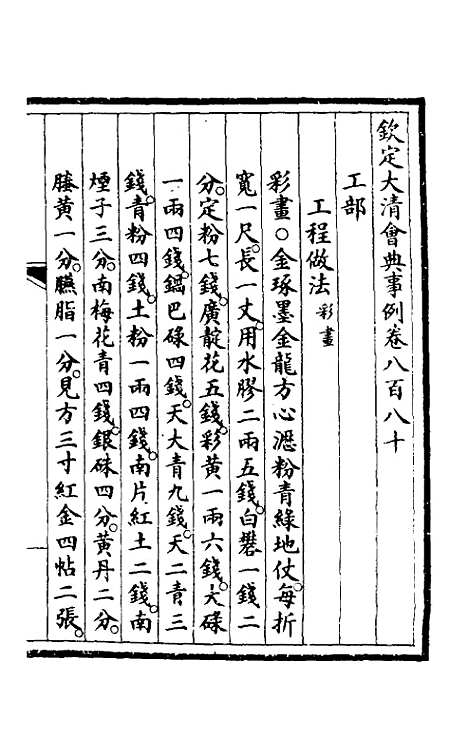 欽定大清會典事例卷八百八十
工部
工程做法彩畫
彩畫○金琢墨金龍方心瀝粉青綠地仗。每折
寬一尺。長一丈。用水膠二兩五錢。白礬一錢二
分。定粉七錢。廣靛花五錢。彩黃一兩六錢。大碌
一兩四錢。鍋巴碌四錢。天大青九錢。天二青三
錢。青粉四錢。土粉一兩四錢。南片紅土二錢。南
煙子三分。南梅花青四錢。銀硃四分。黃丹二分。
籐黃一分。臙脂一分。見方三寸紅金四帖二張。